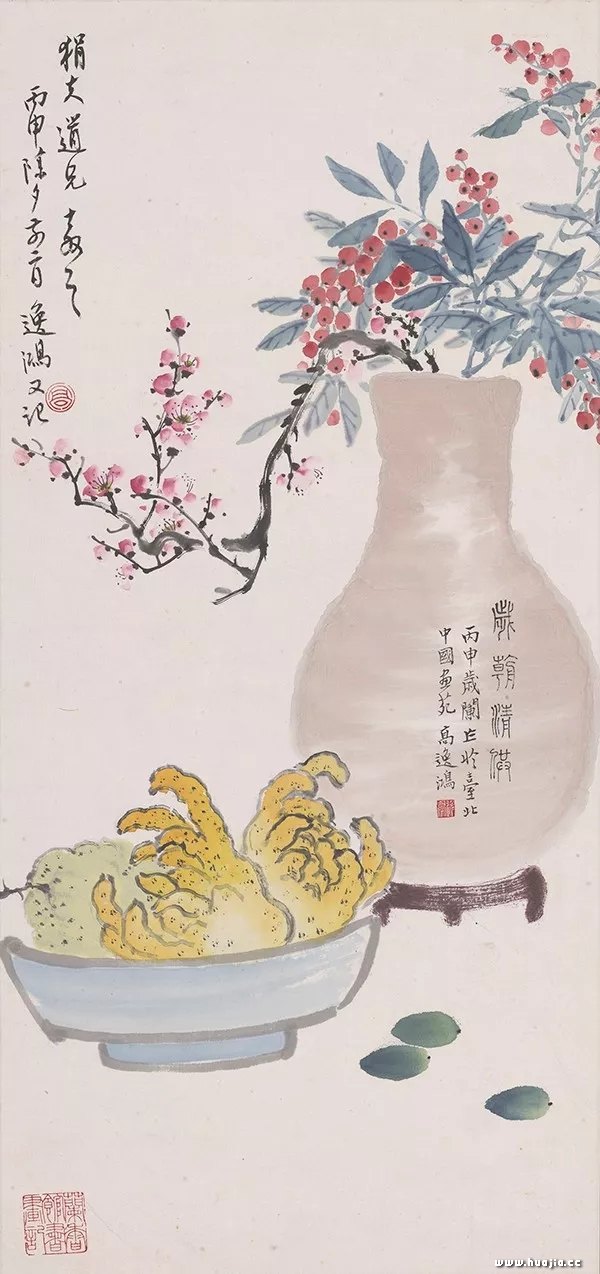 歲朝清供
丙申歲闌於臺北
中國畫苑 高逸鴻
狷夫道兄教之
丙申除夕前日 逸鴻又記
www.huajia.cc